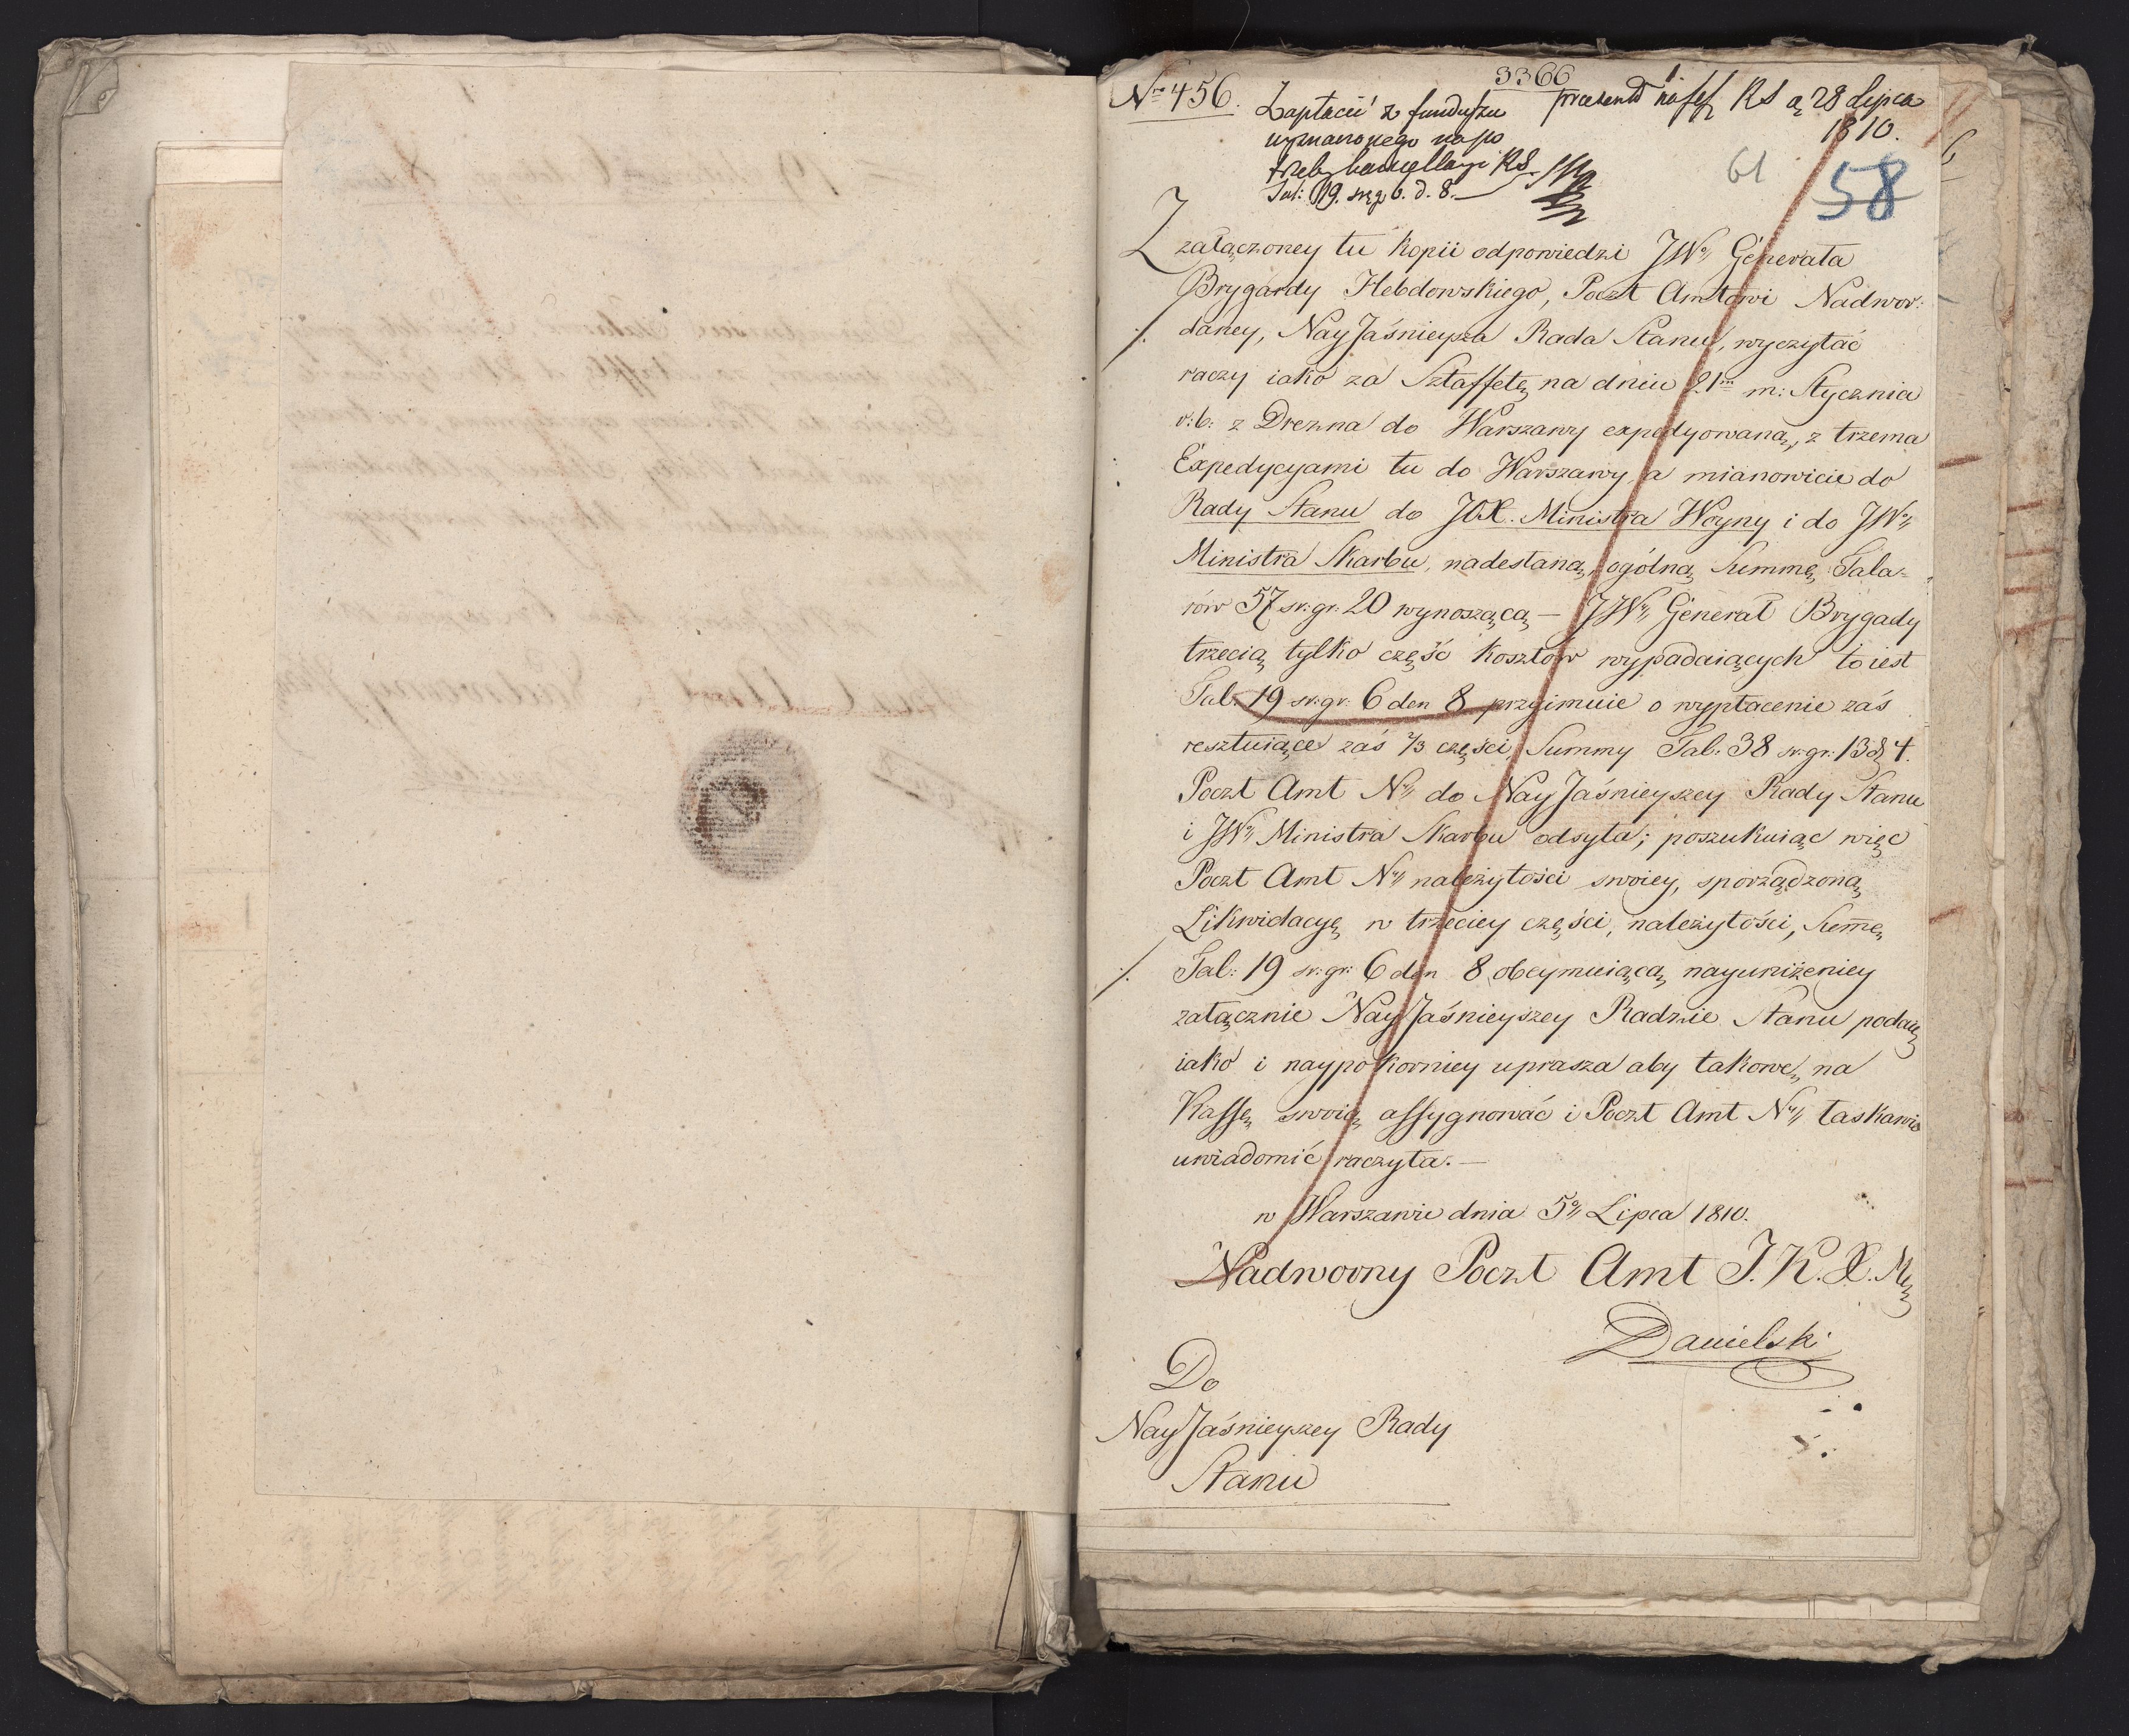 3366
Nro 456.
Zapłacić z funduszu
wyznaczonego na po
trzeby kancellaryi RS.
Tal: 19. srg. 6. d. 8.
praesent na sess RS d 28 Lipca
1810.
61
58
Z załączoney tu kopii odpowiedzi JWo Generała
Brygardy Hebdowskiego, Poczt Amtowi Nadwor:
daney, NayJaśnieysza Rada Stanu, wyczytać
raczy iako za Sztaffetę na dniu 21m m: Stycznia
r: b: z Drezna do Warszawy expedyowaną, z trzema
Expedycyami tu do Warszawy, a mianowicie do
Rady Stanu do JOX. Ministra Woyny i do JWo
Ministra Skarbu, nadesłaną, ogólną Summę Tala=
rów 57 sr: gr: 20 wynoszącą — JW Generał Brygady
trzecią tylko część kosztów wypadaiących to iest
Tal: 19 sr: gr: 6 den 8 przyimuie o wypłacenie zaś
resztuiące zaś 2/3 części, Summy Tal: 38 sr: gr: 13 d 4.
Poczt Amt Ny do NayJaśnieyszey Rady Stanu
i JWo Ministra Skarbu odsyła; poszukuiąc więc
Poczt Amt Ny należytości swoiey, sporządzoną
Likwidacyę w trzeciey części, należytości, Sumę
Tal: 19 sr: gr: 6 den 8 obeymuiącą nayuniżeniey
załącznie NayJaśnieyszey Radzie Stanu podaię
iako i naypokorniey uprasza aby takowę na
Kassę swoią assygnować i Poczt Amt Ny łaskawie
uwiadomić raczyła. —
w Warszawie dnia 5o Lipca 1810.
Nadworny Poczt Amt J. K. X. M
Danielski
Do
NayJaśnieyszey Rady
Stanu